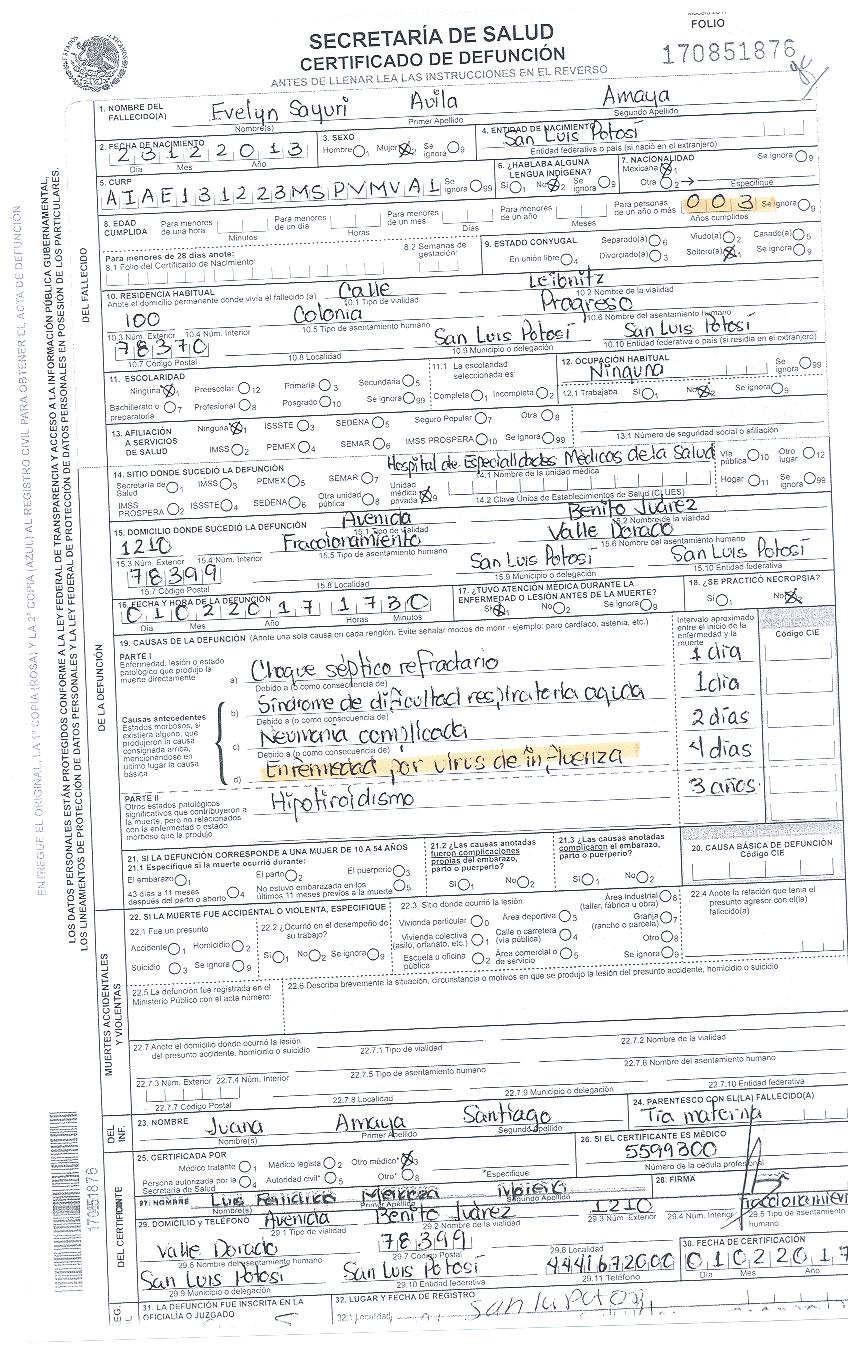 SECRETARÍA DE SALUD
CERTIFICADO DE DEFUNCIÓN
ANTES DE LLENAR LEA LAS INSTRUCCIONES EN EL REVERSO
FOLIO
170851876
ENTREGUE EL ORIGINAL, LA 1ª COPIA (ROSA) Y LA 2ª COPIA (AZUL) AL REGISTRO CIVIL PARA OBTENER EL ACTA DE DEFUNCIÓN
LOS DATOS PERSONALES ESTÁN PROTEGIDOS CONFORME A LA LEY FEDERAL DE TRANSPARENCIA Y ACCESO A LA INFORMACIÓN PÚBLICA GUBERNAMENTAL,
LOS LINEAMIENTOS DE PROTECCIÓN DE DATOS PERSONALES Y LA LEY FEDERAL DE PROTECCIÓN DE DATOS PERSONALES EN POSESIÓN DE LOS PARTICULARES.
DEL FALLECIDO
1. NOMBRE DEL FALLECIDO(A) Evelyn Sayuri Avila Amaya
Nombre(s) Primer Apellido Segundo Apellido
2. FECHA DE NACIMIENTO 23 12 2013 3. SEXO Hombre 1 Mujer 2 Se ignora 9 4. ENTIDAD DE NACIMIENTO San Luis Potosí
Día Mes Año Entidad federativa o país (si nació en el extranjero)
5. CURP AIAE131223MSPVMVA1 Se ignora 99 6. ¿HABLABA ALGUNA LENGUA INDÍGENA? Sí 1 No 2 Se ignora 9 7. NACIONALIDAD Mexicana 1 Otra 2 Especifique Se ignora 9
8. EDAD CUMPLIDA Para menores de una hora Minutos Para menores de un día Horas Para menores de un mes Días Para menores de un año Meses Para personas de un año o más 003 Años cumplidos Se ignora 9
Para menores de 28 días anote:
8.1 Folio del Certificado de Nacimiento: 8.2 Semanas de gestación: 9. ESTADO CONYUGAL En unión libre 4 Separado(a) 6 Divorciado(a) 3 Viudo(a) 2 Soltero(a) 1 Casado(a) 5 Se ignora 9
10. RESIDENCIA HABITUAL Calle Leibnitz
Anote el domicilio permanente donde vivía el fallecido (a) 10.1 Tipo de vialidad 10.2 Nombre de la vialidad
100 Colonia Progreso
10.3 Núm. Exterior 10.4 Núm. Interior 10.5 Tipo de asentamiento humano 10.6 Nombre del asentamiento humano
78370 San Luis Potosí San Luis Potosí
10.7 Código Postal 10.8 Localidad 10.9 Municipio o delegación 10.10 Entidad federativa o país (si residía en el extranjero)
11. ESCOLARIDAD Ninguna 1 Preescolar 12 Primaria 3 Secundaria 5
Bachillerato o preparatoria 7 Profesional 8 Posgrado 10 Se ignora 99
11.1 La escolaridad seleccionada es: Completa 1 Incompleta 2
12. OCUPACIÓN HABITUAL Ninguna Se ignora 99
12.1 Trabajaba Sí 1 No 2 Se ignora 9
13. AFILIACIÓN A SERVICIOS DE SALUD Ninguna 1 ISSSTE 3 SEDENA 5 Seguro Popular 7 Otra 8
IMSS 2 PEMEX 4 SEMAR 6 IMSS PROSPERA 10 Se ignora 99 13.1 Número de seguridad social o afiliación
DE LA DEFUNCIÓN
14. SITIO DONDE SUCEDIÓ LA DEFUNCIÓN Hospital de Especialidades Médicos de la Salud
Secretaría de Salud 1 IMSS 3 PEMEX 5 SEMAR 7 Unidad médica privada 9 14.1 Nombre de la unidad médica Vía pública 10 Otro lugar 12
IMSS PROSPERA 2 ISSSTE 4 SEDENA 6 Otra unidad pública 8 14.2 Clave Única de Establecimientos de Salud (CLUES) Hogar 11 Se ignora 99
15. DOMICILIO DONDE SUCEDIÓ LA DEFUNCIÓN Avenida Benito Juárez
15.1 Tipo de vialidad 15.2 Nombre de la vialidad
1210 Fraccionamiento Valle Dorado
15.3 Núm. Exterior 15.4 Núm. Interior 15.5 Tipo de asentamiento humano 15.6 Nombre del asentamiento humano
78399 San Luis Potosí San Luis Potosí
15.7 Código Postal 15.8 Localidad 15.9 Municipio o delegación 15.10 Entidad federativa
16. FECHA Y HORA DE LA DEFUNCIÓN 01 02 2017 17 30
Día Mes Año Horas Minutos
17. ¿TUVO ATENCIÓN MÉDICA DURANTE LA ENFERMEDAD O LESIÓN ANTES DE LA MUERTE? Sí 1 No 2 Se ignora 9
18. ¿SE PRACTICÓ NECROPSIA? Sí 1 No 2
19. CAUSAS DE LA DEFUNCIÓN (Anote una sola causa en cada renglón. Evite señalar modos de morir - ejemplo: paro cardíaco, astenia, etc.)
Intervalo aproximado entre el inicio de la enfermedad y la muerte Código CIE
PARTE I
Enfermedad, lesión o estado patológico que produjo la muerte directamente
a) Choque séptico refractario 1 día
Debido a (o como consecuencia de)
Causas antecedentes
Estados morbosos, si existiera alguno, que produjeron la causa consignada arriba, mencionándose en último lugar la causa básica
b) Síndrome de dificultad respiratoria aguda 1 día
Debido a (o como consecuencia de)
c) Neumonía complicada 2 días
Debido a (o como consecuencia de)
d) Enfermedad por virus de influenza 4 días
PARTE II
Otros estados patológicos significativos que contribuyeron a la muerte, pero no relacionados con la enfermedad o estado morboso que la produjo
Hipotiroidismo 3 años
20. CAUSA BÁSICA DE DEFUNCIÓN
Código CIE
21. SI LA DEFUNCIÓN CORRESPONDE A UNA MUJER DE 10 A 54 AÑOS
21.1 Especifique si la muerte ocurrió durante:
El embarazo 1 El parto 2 El puerperio 3
43 días a 11 meses después del parto o aborto 4 No estuvo embarazada en los últimos 11 meses previos a la muerte 5
21.2 ¿Las causas anotadas fueron complicaciones propias del embarazo, parto o puerperio? Sí 1 No 2
21.3 ¿Las causas anotadas complicaron el embarazo, parto o puerperio? Sí 1 No 2
MUERTES ACCIDENTALES Y VIOLENTAS
22. SI LA MUERTE FUE ACCIDENTAL O VIOLENTA, ESPECIFIQUE
22.1 Fue un presunto
Accidente 1 Homicidio 2
Suicidio 3 Se ignora 9
22.2 ¿Ocurrió en el desempeño de su trabajo? Sí 1 No 2 Se ignora 9
22.3 Sitio donde ocurrió la lesión
Vivienda particular 0 Área deportiva 3 Área industrial (taller, fábrica u obra) 6
Vivienda colectiva (asilo, orfanato, etc.) 1 Calle o carretera (vía pública) 4 Granja (rancho o parcela) 7
Escuela u oficina pública 2 Área comercial o de servicio 5 Otro 8 Se ignora 9
22.4 Anote la relación que tenía el presunto agresor con el(la) fallecido(a)
22.5 La defunción fue registrada en el Ministerio Público con el acta número:
22.6 Describa brevemente la situación, circunstancia o motivos en que se produjo la lesión del presunto accidente, homicidio o suicidio
22.7 Anote el domicilio donde ocurrió la lesión del presunto accidente, homicidio o suicidio 22.7.1 Tipo de vialidad 22.7.2 Nombre de la vialidad
22.7.3 Núm. Exterior 22.7.4 Núm. Interior 22.7.5 Tipo de asentamiento humano 22.7.6 Nombre del asentamiento humano
22.7.7 Código Postal 22.7.8 Localidad 22.7.9 Municipio o delegación 22.7.10 Entidad federativa
DEL INF.
23. NOMBRE Juana Amaya Santiago
Nombre(s) Primer Apellido Segundo Apellido
24. PARENTESCO CON EL(LA) FALLECIDO(A) Tía materna
DEL CERTIFICANTE
170851876
25. CERTIFICADA POR
Médico tratante 1 Médico legista 2 Otro médico* 3
Persona autorizada por la Secretaría de Salud 4 Autoridad civil* 5 Otro* 8 *Especifique
26. SI EL CERTIFICANTE ES MÉDICO 5599300
Número de la cédula profesional
27. NOMBRE Luis Mendoza
Primer Apellido Segundo Apellido
28. FIRMA
29. DOMICILIO Y TELÉFONO Avenida Benito Juárez 1210 Fraccionamiento
29.1 Tipo de vialidad 29.2 Nombre de la vialidad 29.3 Núm. Exterior 29.4 Núm. Interior 29.5 Tipo de asentamiento humano
Valle Dorado 78399
29.6 Nombre del asentamiento humano 29.7 Código Postal 29.8 Localidad
San Luis Potosí San Luis Potosí 4441672000
29.9 Municipio o delegación 29.10 Entidad federativa 29.11 Teléfono
30. FECHA DE CERTIFICACIÓN 01 02 2017
Día Mes Año
31. LA DEFUNCIÓN FUE INSCRITA EN LA OFICIALÍA O JUZGADO 5
32. LUGAR Y FECHA DE REGISTRO
32.1 Localidad